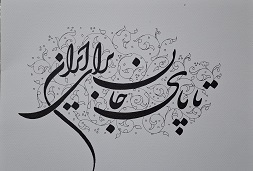 تا پای جان برای ایران